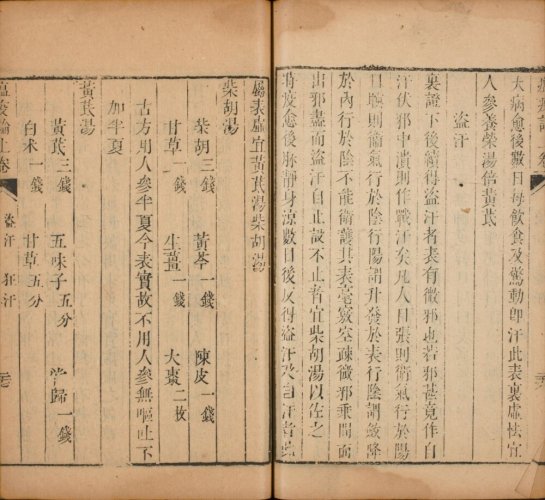 大病愈後數日每飲食及驚動即汗此表裏虛怯宜
人參養榮湯倍黃芪
盜汗
裏證下後續得盜汗者表有微邪也若邪甚竟作自
汗伏邪中潰則作戰汗矣凡人目張則衛氣行於陽
目瞑則衛氣行於陰行陽謂升發於表行陰謂斂降
於內行於陰不能衛護其表毫竅空疎微邪乘間而
出邪盡而盜汗自止設不止者宜柴胡湯以佐之
時疫愈後脉靜身涼數日後反得盜汗及自汗者此
屬表虛宜黃芪湯柴胡湯
柴胡湯
柴胡三錢 黃芩一錢 陳皮一錢
甘草一錢 生薑一錢 大棗二枚
古方用人參半夏今表實故不用人參無嘔吐不
加半夏
黃芪湯
黃芪三錢 五味子五分 當歸一錢
白术一錢 甘草五分
瘟疫論上卷 盜汗 狂汗